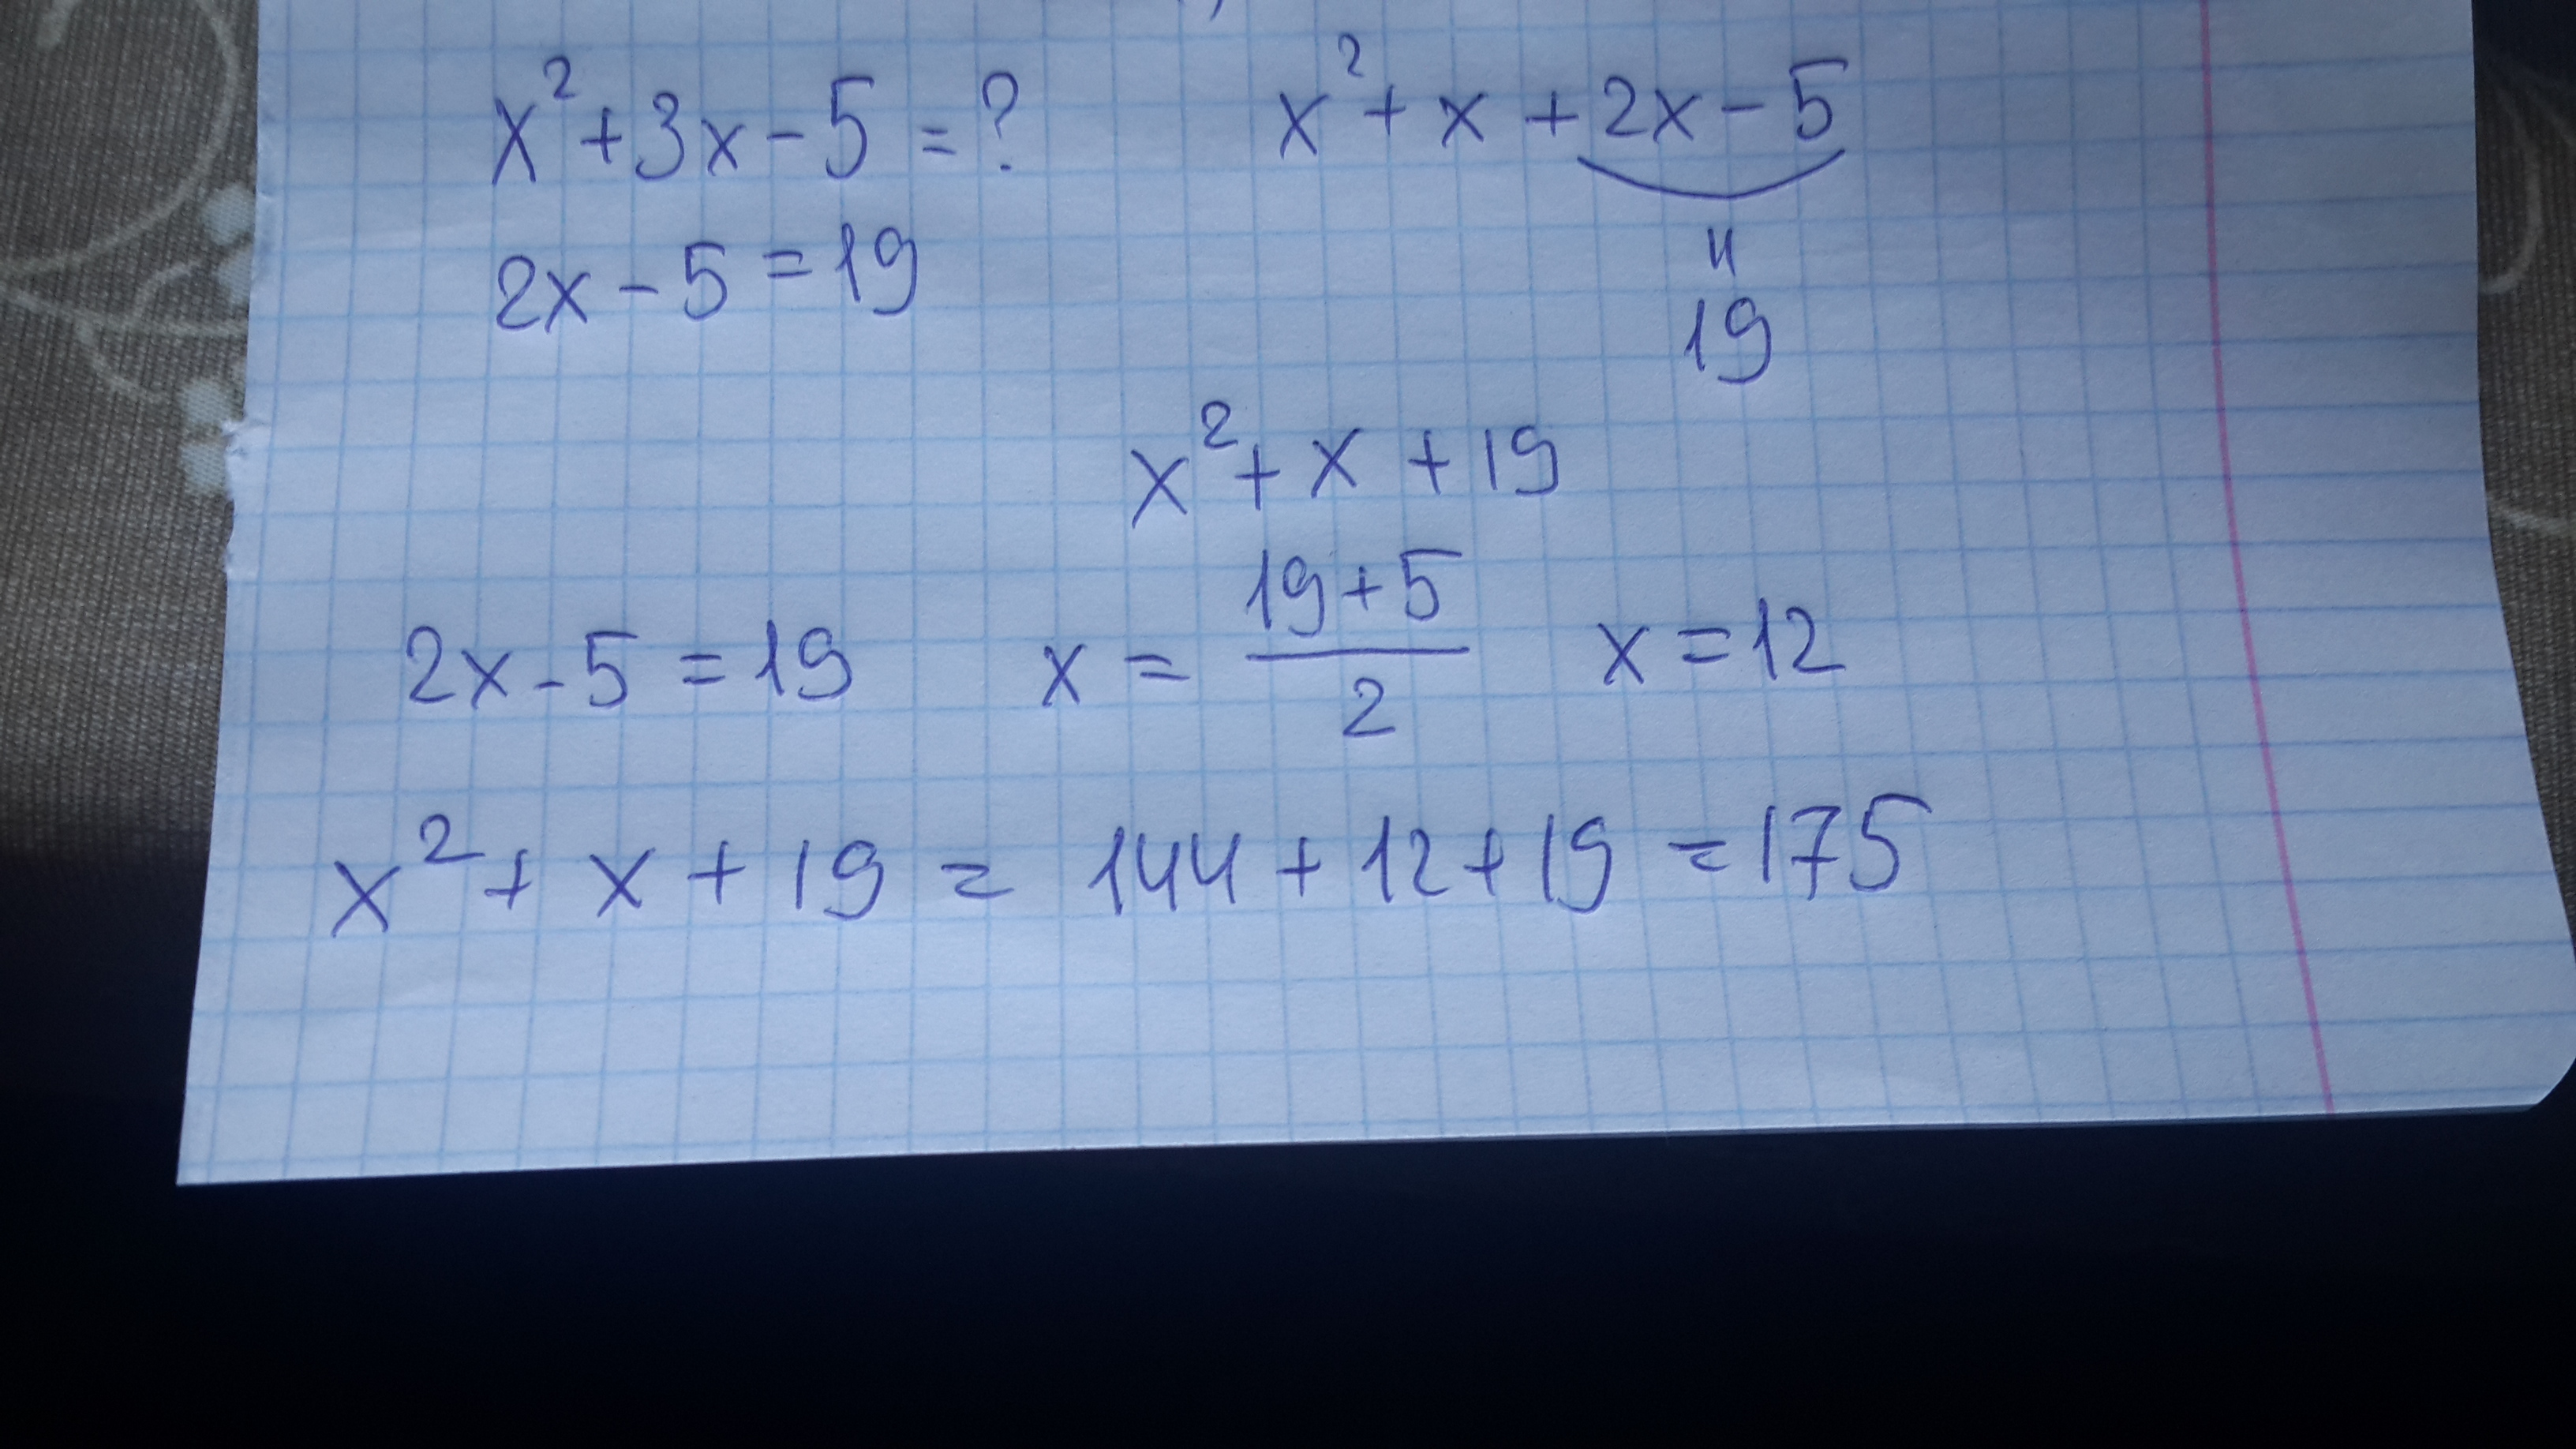 x²+3x-5=? x²+x+2x-5
2x-5=19 ıı
19
x²+x+19
2x-5=19 x=\frac{19+5}{2} x=12
x²+x+19=144+12+19=175